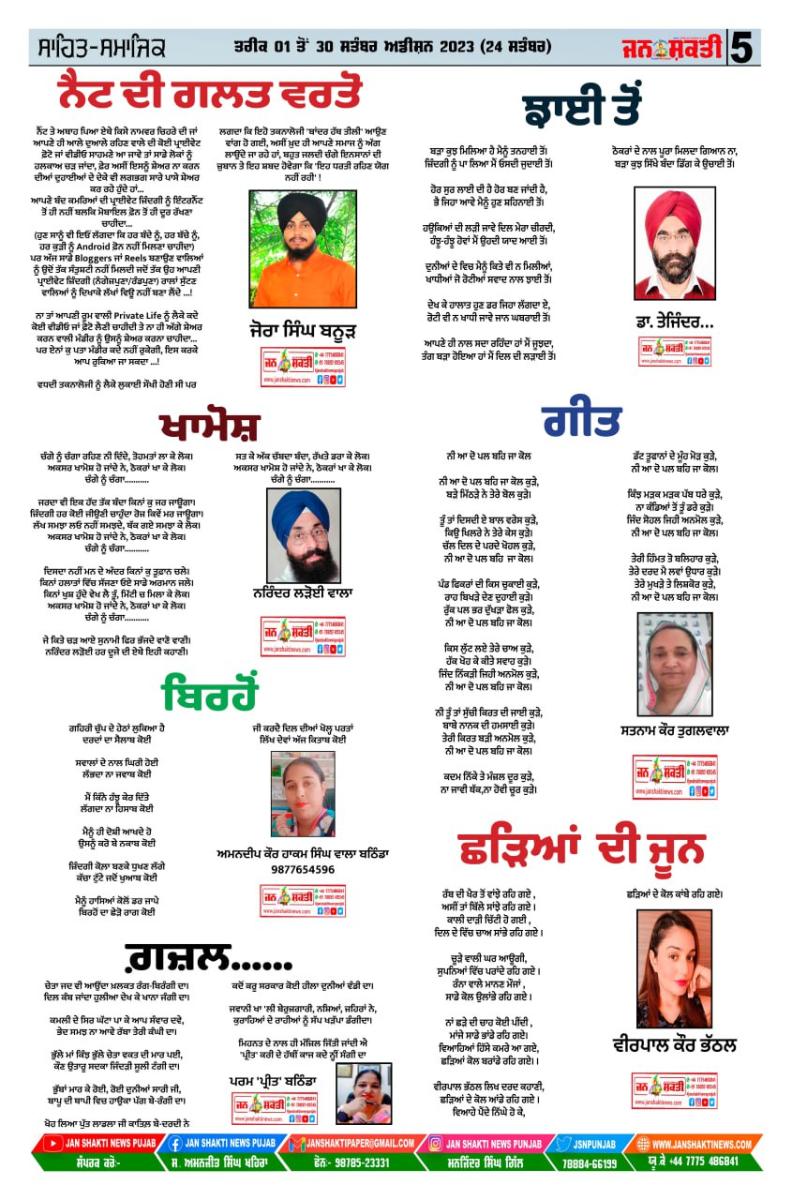 ਸਾਹਿਤ-ਸਮਾਜਿਕ
ਤਰੀਕ 01 ਤੋਂ 30 ਸਤੰਬਰ ਅਡੀਸ਼ਨ 2023 (24 ਸਤੰਬਰ)
ਜਨ ਸ਼ਕਤੀ 5
ਨੈਟ ਦੀ ਗਲਤ ਵਰਤੋ
ਨੈੱਟ ਤੇ ਅਥਾਹ ਪਿਆ ਏਥੇ ਕਿਸੇ ਨਾਮਵਰ ਚਿਹਰੇ ਦੀ ਜਾਂ
ਆਪਣੇ ਹੀ ਆਲੇ ਦੁਆਲੇ ਰਹਿਣ ਵਾਲੇ ਦੀ ਕੋਈ ਪ੍ਰਾਈਵੇਟ
ਫ਼ੋਟੋ ਜਾਂ ਵੀਡੀਓ ਸਾਹਮਣੇ ਆ ਜਾਵੇ ਤਾਂ ਸਾਡੇ ਲੋਕਾਂ ਨੂੰ
ਹਲਕਾਅ ਚੜ ਜਾਂਦਾ, ਫ਼ੇਰ ਅਸੀਂ ਇਸਨੂੰ ਸ਼ੇਅਰ ਨਾ ਕਰਨ
ਦੀਆਂ ਦੁਹਾਈਆਂ ਦੇ ਦੇਕੇ ਵੀ ਲਗਭਗ ਸਾਰੇ ਪਾਸੇ ਸ਼ੇਅਰ
ਕਰ ਰਹੇ ਹੁੰਦੇ ਹਾਂ...
ਆਪਣੇ ਬੰਦ ਕਮਰਿਆਂ ਦੀ ਪ੍ਰਾਈਵੇਟ ਜ਼ਿੰਦਗੀ ਨੂੰ ਇੰਟਰਨੈੱਟ
ਤੋਂ ਹੀ ਨਹੀਂ ਬਲਕਿ ਮੋਬਾਇਲ ਫ਼ੋਨ ਤੋਂ ਹੀ ਦੂਰ ਰੱਖਣਾ
ਚਾਹੀਦਾ...
(ਹੁਣ ਸਾਨੂੰ ਵੀ ਇਓਂ ਲੱਗਦਾ ਕਿ ਹਰ ਬੰਦੇ ਨੂੰ, ਹਰ ਬੱਚੇ ਨੂੰ,
ਹਰ ਕੁੜੀ ਨੂੰ Android ਫ਼ੋਨ ਨਹੀਂ ਮਿਲਣਾ ਚਾਹੀਦਾ)
ਪਰ ਅੱਜ ਸਾਡੇ Bloggers ਜਾਂ Reels ਬਣਾਉਣ ਵਾਲਿਆਂ
ਨੂੰ ਉਦੋਂ ਤੱਕ ਸੰਤੁਸ਼ਟੀ ਨਹੀਂ ਮਿਲਦੀ ਜਦੋਂ ਤੱਕ ਉਹ ਆਪਣੀ
ਪ੍ਰਾਈਵੇਟ ਜ਼ਿੰਦਗੀ (ਨੰਗੇਜਪੁਣਾ/ਰੰਡਪੁਣਾ) ਰਾਲਾਂ ਸੁੱਟਣ
ਵਾਲਿਆਂ ਨੂੰ ਦਿਖਾਕੇ ਲੱਖਾਂ ਵਿਊ ਨਹੀਂ ਬਣਾ ਲੈਂਦੇ ...!
ਨਾ ਤਾਂ ਆਪਣੀ ਰੂਮ ਵਾਲੀ Private Life ਨੂੰ ਲੈਕੇ ਕਦੇ
ਕੋਈ ਵੀਡੀਓ ਜਾਂ ਫ਼ੋਟੋ ਲੈਣੀ ਚਾਹੀਦੀ ਤੇ ਨਾ ਹੀ ਅੱਗੇ ਸ਼ੇਅਰ
ਕਰਨ ਵਾਲੀ ਮੰਡੀਰ ਨੂੰ ਉਸਨੂੰ ਸ਼ੇਅਰ ਕਰਨਾ ਚਾਹੀਦਾ...
ਪਰ ਏਨਾਂ ਕੁ ਪਤਾ ਮੰਡੀਰ ਕਦੇ ਨਹੀਂ ਰੁਕੇਗੀ, ਇਸ ਕਰਕੇ
ਆਪ ਰੁਕਿਆ ਜਾ ਸਕਦਾ ...!
ਵਧਦੀ ਤਕਨਾਲੋਜੀ ਨੂੰ ਲੈਕੇ ਲੁਕਾਈ ਸੌਖੀ ਹੋਣੀ ਸੀ ਪਰ
ਲਗਦਾ ਕਿ ਇਹੋ ਤਕਨਾਲੋਜੀ 'ਬਾਂਦਰ ਹੱਥ ਤੀਲੀ' ਆਉਣ
ਵਾਂਗ ਹੋ ਗਈ, ਅਸੀਂ ਖ਼ੁਦ ਹੀ ਆਪਣੇ ਸਮਾਜ ਨੂੰ ਅੱਗ
ਲਾਉਂਦੇ ਜਾ ਰਹੇ ਹਾਂ, ਬਹੁਤ ਜਲਦੀ ਚੰਗੇ ਇਨਸਾਨਾਂ ਦੀ
ਜ਼ੁਬਾਨ ਤੇ ਇਹ ਸ਼ਬਦ ਹੋਵੇਗਾ ਕਿ 'ਇਹ ਧਰਤੀ ਰਹਿਣ ਯੋਗ
ਨਹੀਂ ਰਹੀ' !
ਜੋਰਾ ਸਿੰਘ ਬਨੂੜ
ਜਨ ਸ਼ਕਤੀ
www.janshaktinews.com
ਝਾਈ ਤੋਂ
ਬੜਾ ਕੁਝ ਮਿਲਿਆ ਹੈ ਮੈਨੂੰ ਤਨਹਾਈ ਤੋਂ।
ਜ਼ਿੰਦਗੀ ਨੂੰ ਪਾ ਲਿਆ ਮੈਂ ਓਸਦੀ ਜੁਦਾਈ ਤੋਂ।
ਹੋਰ ਸੁਰ ਲਾਈ ਦੀ ਹੈ ਹੋਰ ਬਣ ਜਾਂਦੀ ਹੈ,
ਭੈ ਜਿਹਾ ਆਵੇ ਮੈਨੂੰ ਹੁਣ ਸ਼ਹਿਨਾਈ ਤੋਂ।
ਹਉਕਿਆਂ ਦੀ ਲੜੀ ਜਾਵੇ ਦਿਲ ਮੇਰਾ ਚੀਰਦੀ,
ਹੰਝੂ-ਹੰਝੂ ਹੋਵਾਂ ਮੈਂ ਉਹਦੀ ਯਾਦ ਆਈ ਤੋਂ।
ਦੁਨੀਆਂ ਦੇ ਵਿਚ ਮੈਨੂੰ ਕਿਤੇ ਵੀ ਨ ਮਿਲੀਆਂ,
ਖਾਧੀਆਂ ਜੋ ਰੋਟੀਆਂ ਸਵਾਦ ਨਾਲ ਝਾਈ ਤੋਂ।
ਦੇਖ ਕੇ ਹਾਲਾਤ ਹੁਣ ਡਰ ਜਿਹਾ ਲੱਗਦਾ ਏ,
ਰੋਟੀ ਵੀ ਨ ਖਾਧੀ ਜਾਵੇ ਜਾਨ ਘਬਰਾਈ ਤੋਂ।
ਆਪਣੇ ਹੀ ਨਾਲ ਸਦਾ ਰਹਿੰਦਾ ਹਾਂ ਮੈਂ ਜੂਝਦਾ,
ਤੰਗ ਬੜਾ ਹੋਇਆ ਹਾਂ ਮੈਂ ਦਿਲ ਦੀ ਲੜਾਈ ਤੋਂ।
ਠੋਕਰਾਂ ਦੇ ਨਾਲ ਪੂਰਾ ਮਿਲਦਾ ਗਿਆਨ ਨਾ,
ਬੜਾ ਕੁਝ ਸਿੱਖੇ ਬੰਦਾ ਡਿੱਗ ਕੇ ਉਚਾਈ ਤੋਂ।
ਡਾ. ਤੇਜਿੰਦਰ...
ਜਨ ਸ਼ਕਤੀ
www.janshaktinews.com
ਖਾਮੋਸ਼
ਚੰਗੇ ਨੂੰ ਚੰਗਾ ਰਹਿਣ ਨੀ ਦਿੰਦੇ, ਤੋਹਮਤਾਂ ਲਾ ਕੇ ਲੋਕ।
ਅਕਸਰ ਖਾਮੋਸ਼ ਹੋ ਜਾਂਦੇ ਨੇ, ਠੋਕਰਾਂ ਖਾ ਕੇ ਲੋਕ।
ਚੰਗੇ ਨੂੰ ਚੰਗਾ...........
ਜਰਦਾ ਵੀ ਇਕ ਹੱਦ ਤੱਕ ਬੰਦਾ ਕਿਨਾਂ ਕੁ ਜਰ ਜਾਊਗਾ।
ਜ਼ਿੰਦਗੀ ਹਰ ਕੋਈ ਜੀਉਣੀ ਚਾਹੁੰਦਾ ਰੋਜ਼ ਕਿਵੇਂ ਮਰ ਜਾਊਗਾ।
ਲੱਖ ਸਮਝਾ ਲਓ ਨਹੀਂ ਸਮਝਦੇ, ਥੱਕ ਗਏ ਸਮਝਾ ਕੇ ਲੋਕ।
ਅਕਸਰ ਖਾਮੋਸ਼ ਹੋ ਜਾਂਦੇ ਨੇ, ਠੋਕਰਾਂ ਖਾ ਕੇ ਲੋਕ।
ਚੰਗੇ ਨੂੰ ਚੰਗਾ...........
ਦਿਸਦਾ ਨਹੀਂ ਮਨ ਦੇ ਅੰਦਰ ਕਿਨਾਂ ਕੁ ਤੂਫ਼ਾਨ ਚਲੇ।
ਕਿਨਾਂ ਹਲਾਤਾਂ ਵਿੱਚ ਸੱਜਣਾ ਓਏ ਸਾਡੇ ਅਰਮਾਨ ਜਲੇ।
ਕਿਨਾਂ ਖੁਸ਼ ਹੁੰਦੇ ਵੇਖ ਲੈ ਤੂੰ, ਮਿੱਟੀ ਚ ਮਿਲਾ ਕੇ ਲੋਕ।
ਅਕਸਰ ਖਾਮੋਸ਼ ਹੋ ਜਾਂਦੇ ਨੇ, ਠੋਕਰਾਂ ਖਾ ਕੇ ਲੋਕ।
ਚੰਗੇ ਨੂੰ ਚੰਗਾ...........
ਜੇ ਕਿਤੇ ਚੜ ਆਏ ਸੁਨਾਮੀ ਫਿਰ ਭੱਜਦੇ ਵਾਣੋ ਵਾਣੀ।
ਨਰਿੰਦਰ ਲੜੋਈ ਹਰ ਦੂਜੇ ਦੀ ਏਥੇ ਇਹੀ ਕਹਾਣੀ।
ਸਤ ਕੇ ਅੱਕ ਚੱਬਦਾ ਬੰਦਾ, ਰੱਖਤੇ ਡਰਾ ਕੇ ਲੋਕ।
ਅਕਸਰ ਖਾਮੋਸ਼ ਹੋ ਜਾਂਦੇ ਨੇ, ਠੋਕਰਾਂ ਖਾ ਕੇ ਲੋਕ।
ਚੰਗੇ ਨੂੰ ਚੰਗਾ...........
ਨਰਿੰਦਰ ਲੜੋਈ ਵਾਲਾ
ਜਨ ਸ਼ਕਤੀ
www.janshaktinews.com
ਗੀਤ
ਨੀ ਆ ਦੋ ਪਲ ਬਹਿ ਜਾ ਕੋਲ
ਨੀ ਆ ਦੋ ਪਲ ਬਹਿ ਜਾ ਕੋਲ ਕੁੜੇ,
ਬੜੇ ਮਿੱਠੜੇ ਨੇ ਤੇਰੇ ਬੋਲ ਕੁੜੇ।
ਤੂੰ ਤਾਂ ਦਿਸਦੀ ਏ ਬਾਲ ਵਰੇਸ ਕੁੜੇ,
ਕਿਉ ਖਿਲਰੇ ਨੇ ਤੇਰੇ ਕੇਸ ਕੁੜੇ।
ਚੱਲ ਦਿਲ ਦੇ ਪਰਦੇ ਖੋਹਲ ਕੁੜੇ,
ਨੀ ਆ ਦੋ ਪਲ ਬਹਿ ਜਾ ਕੋਲ।
ਪੰਡ ਫਿਕਰਾਂ ਦੀ ਕਿਸ ਚੁਕਾਈ ਕੁੜੇ,
ਰਾਹ ਬਿਖੜੇ ਦੇਣ ਦੁਹਾਈ ਕੁੜੇ।
ਰੁੱਕ ਪਲ ਭਰ ਦੁੱਖੜਾ ਫੋਲ ਕੁੜੇ,
ਨੀ ਆ ਦੋ ਪਲ ਬਹਿ ਜਾ ਕੋਲ।
ਕਿਸ ਲੁੱਟ ਲਏ ਤੇਰੇ ਚਾਅ ਕੁੜੇ,
ਹੱਕ ਖੋਹ ਕੇ ਕੀਤੇ ਸਵਾਹ ਕੁੜੇ।
ਜਿੰਦ ਨਿੱਕੜੀ ਜਿਹੀ ਅਨਮੋਲ ਕੁੜੇ,
ਨੀ ਆ ਦੋ ਪਲ ਬਹਿ ਜਾ ਕੋਲ।
ਨੀ ਤੂੰ ਤਾਂ ਸੁੱਚੀ ਕਿਰਤ ਦੀ ਜਾਈ ਕੁੜੇ,
ਬਾਬੇ ਨਾਨਕ ਦੀ ਹਮਸਾਈ ਕੁੜੇ।
ਤੇਰੀ ਕਿਰਤ ਬੜੀ ਅਨਮੋਲ ਕੁੜੇ,
ਨੀ ਆ ਦੋ ਪਲ ਬਹਿ ਜਾ ਕੋਲ।
ਕਦਮ ਨਿੱਕੇ ਤੇ ਮੰਜ਼ਲ ਦੂਰ ਕੁੜੇ,
ਨਾ ਜਾਵੀ ਥੱਕ,ਨਾ ਹੋਵੀ ਚੂਰ ਕੁੜੇ।
ਡੱਟ ਤੂਫਾਨਾਂ ਦੇ ਮੂੰਹ ਮੋੜ ਕੁੜੇ,
ਨੀ ਆ ਦੋ ਪਲ ਬਹਿ ਜਾ ਕੋਲ।
ਕਿੰਝ ਮੜਕ ਮੜਕ ਪੱਬ ਧਰੇ ਕੁੜੇ,
ਨਾ ਕੰਡਿਆਂ ਤੋਂ ਤੂੰ ਡਰੇ ਕੁੜੇ।
ਜਿੰਦ ਸੋਹਲ ਜਿਹੀ ਅਨਮੋਲ ਕੁੜੇ,
ਨੀ ਆ ਦੋ ਪਲ ਬਹਿ ਜਾ ਕੋਲ।
ਤੇਰੀ ਹਿੰਮਤ ਤੋ ਬਲਿਹਾਰ ਕੁੜੇ,
ਤੇਰੇ ਦਰਦ ਮੈ ਲਵਾਂ ਉਧਾਰ ਕੁੜੇ।
ਤੇਰੇ ਮੁਖੜੇ ਤੇ ਲਿਸ਼ਕੋਰ ਕੁੜੇ,
ਨੀ ਆ ਦੋ ਪਲ ਬਹਿ ਜਾ ਕੋਲ।
ਸਤਨਾਮ ਕੌਰ ਤੁਗਲਵਾਲਾ
ਜਨ ਸ਼ਕਤੀ
www.janshaktinews.com
ਬਿਰਹੋਂ
ਗਹਿਰੀ ਚੁੱਪ ਦੇ ਹੇਠਾਂ ਲੁਕਿਆ ਹੈ
ਦਰਦਾਂ ਦਾ ਸੈਲਾਬ ਕੋਈ
ਸਵਾਲਾਂ ਦੇ ਨਾਲ ਘਿਰੀ ਹੋਈ
ਲੱਭਦਾ ਨਾ ਜਵਾਬ ਕੋਈ
ਮੈਂ ਕਿੰਨੇ ਹੰਝੂ ਕੇਰ ਦਿੱਤੇ
ਲੱਗਦਾ ਨਾ ਹਿਸਾਬ ਕੋਈ
ਮੈਨੂੰ ਹੀ ਦੋਸ਼ੀ ਆਖਦੇ ਹੋ
ਉਸਨੂੰ ਕਰੋ ਬੇ ਨਕਾਬ ਕੋਈ
ਜ਼ਿੰਦਗੀ ਕੋਲਾ ਬਣਕੇ ਧੁਖਣ ਲੱਗੇ
ਕੱਚਾ ਟੁੱਟੇ ਜਦੋਂ ਖੁਆਬ ਕੋਈ
ਮੈਨੂੰ ਹਾਸਿਆਂ ਕੋਲੋਂ ਡਰ ਜਾਪੇ
ਬਿਰਹੋਂ ਦਾ ਛੇੜੋ ਰਾਗ ਕੋਈ
ਜੀ ਕਰਦੈ ਦਿਲ ਦੀਆਂ ਖੋਲ੍ਹ ਪਰਤਾਂ
ਲਿੱਖ ਦੇਵਾਂ ਅੱਜ ਕਿਤਾਬ ਕੋਈ
ਅਮਨਦੀਪ ਕੌਰ ਹਾਕਮ ਸਿੰਘ ਵਾਲਾ ਬਠਿੰਡਾ
9877654596
ਜਨ ਸ਼ਕਤੀ
www.janshaktinews.com
ਛੜਿਆਂ ਦੀ ਜੂਨ
ਰੱਬ ਦੀ ਖੈਰ ਤੋਂ ਵਾਂਝੇ ਰਹਿ ਗਏ ,
ਅਸੀਂ ਤਾਂ ਬਿੱਲੇ ਸਾਂਝੇ ਰਹਿ ਗਏ ।
ਕਾਲੀ ਦਾੜੀ ਚਿੱਟੀ ਹੋ ਗਈ ,
ਦਿਲ ਦੇ ਵਿੱਚ ਚਾਅ ਸਾਂਭੇ ਰਹਿ ਗਏ ।
ਚੂੜੇ ਵਾਲੀ ਘਰ ਆਊਗੀ,
ਸੁਪਨਿਆਂ ਵਿੱਚ ਪਰਾਂਦੇ ਰਹਿ ਗਏ ।
ਰੰਨਾ ਵਾਲੇ ਮਾਨਣ ਮੌਜਾਂ ,
ਸਾਡੇ ਕੋਲ ਉਲਾਂਭੇ ਰਹਿ ਗਏ ।
ਨਾਂ ਛੜੇ ਦੀ ਚਾਹ ਕੋਈ ਪੀਂਦੀ ,
ਮਾਂਜੇ ਸਾਡੇ ਭਾਂਡੇ ਰਹਿ ਗਏ।
ਵਿਆਹਿਆਂ ਹਿੱਸੇ ਕਮਰੇ ਆ ਗਏ,
ਛੜਿਆਂ ਕੋਲ ਬਰਾਂਡੇ ਰਹਿ ਗਏ ।
ਵੀਰਪਾਲ ਭੱਠਲ ਲਿਖ ਦਰਦ ਕਹਾਣੀ,
ਛੜਿਆਂ ਦੇ ਕੋਲ ਆਂਡੇ ਰਹਿ ਗਏ ।
ਵਿਆਹੇ ਪੈਂਦੇ ਨਿੱਘੇ ਹੋ ਕੇ,
ਛੜਿਆਂ ਦੇ ਕੋਲ ਕਾਂਬੇ ਰਹਿ ਗਏ।
ਵੀਰਪਾਲ ਕੌਰ ਭੱਠਲ
ਜਨ ਸ਼ਕਤੀ
www.janshaktinews.com
ਗ਼ਜ਼ਲ......
ਚੇਤਾ ਜਦ ਵੀ ਆਉਂਦਾ ਖ਼ਲਕਤ ਰੰਗ-ਬਿਰੰਗੀ ਦਾ।
ਦਿਲ ਕੰਬ ਜਾਂਦਾ ਹੁਲੀਆ ਦੇਖ ਕੇ ਖਾਨਾ ਜੰਗੀ ਦਾ।
ਕਮਲੀ ਦੇ ਸਿਰ ਘੱਟਾ ਪਾ ਕੇ ਆਪ ਸੰਵਾਰ ਦਵੇ,
ਭੇਦ ਸਮਝ ਨਾ ਆਵੇ ਰੱਬਾ ਤੇਰੀ ਕੰਘੀ ਦਾ।
ਭੁੱਲੇ ਮਾਂ ਕਿੰਝ ਭੁੱਲੇ ਚੇਤਾ ਵਕਤ ਦੀ ਮਾਰ ਪਈ,
ਕੌਣ ਉਤਾਰੂ ਸਦਕਾ ਜਿੰਦੜੀ ਸੂਲੀ ਟੰਗੀ ਦਾ।
ਭੁੱਬਾਂ ਮਾਰ ਕੇ ਰੋਈ, ਰੋਈ ਦੁਨੀਆਂ ਸਾਰੀ ਜੀ,
ਬਾਪੂ ਦੀ ਥਾਪੀ ਵਿਚ ਹਾਉਕਾ ਪੱਗ ਬੇ-ਰੰਗੀ ਦਾ।
ਖੋਹ ਲਿਆ ਪੁੱਤ ਲਾਡਲਾ ਜੀ ਕਾਤਿਲ ਬੇ-ਦਰਦੀ ਨੇ
ਕਦੋਂ ਕਰੂ ਸਰਕਾਰ ਕੋਈ ਹੀਲਾ ਦੁਨੀਆਂ ਵੰਡੀ ਦਾ।
ਜਵਾਨੀ ਖਾ 'ਲੀ ਬੇਰੁਜ਼ਗਾਰੀ, ਨਸ਼ਿਆਂ, ਜ਼ਹਿਰਾਂ ਨੇ,
ਕੁਰਾਹਿਆਂ ਦੇ ਰਾਹੀਆਂ ਨੂੰ ਸੱਪ ਖੜੱਪਾ ਡੰਗੀਦਾ।
ਮਿਹਨਤ ਦੇ ਨਾਲ ਹੀ ਮੰਜ਼ਿਲ ਜਿੱਤੀ ਜਾਂਦੀ ਐ
'ਪ੍ਰੀਤ' ਕਰੀ ਦੇ ਹੱਥੀਂ ਕਾਜ ਕਦੇ ਨ੍ਹੀਂ ਸੰਗੀ ਦਾ
ਪਰਮ 'ਪ੍ਰੀਤ' ਬਠਿੰਡਾ
ਜਨ ਸ਼ਕਤੀ
www.janshaktinews.com
JAN SHAKTI NEWS PUJAB
JAN SHAKTI NEWS PUNJAB
JANSHAKTIPAPER@GMAIL.COM
JAN SHAKTI NEWS PUNJAB
JSNPUNJAB
WWW.JANSHAKTINEWS.COM
ਸੰਪਰਕ ਕਰੋ:-
ਸ. ਅਮਨਜੀਤ ਸਿੰਘ ਖਹਿਰਾ
ਫੋਨ:- 98785-23331
ਮਨਜਿੰਦਰ ਸਿੰਘ ਗਿੱਲ
78884-66199
ਯੂ.ਕੇ +44 7775 486841